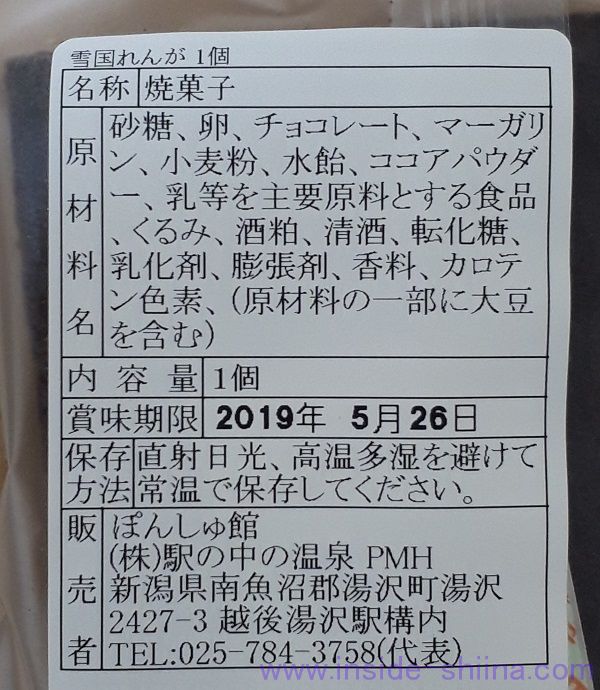 雪国れんが 1個
名称 焼菓子
原材料名 砂糖、卵、チョコレート、マーガリ
ン、小麦粉、水飴、ココアパウダ
ー、乳等を主要原料とする食品
、くるみ、酒粕、清酒、転化糖、
乳化剤、膨張剤、香料、カロテ
ン色素、(原材料の一部に大豆
を含む)
内容量 1個
賞味期限 2019年 5月26日
保存方法 直射日光、高温多湿を避けて
常温で保存してください。
販売者 ぽんしゅ館
(株)駅の中の温泉 PMH
新潟県南魚沼郡湯沢町湯沢
2427-3 越後湯沢駅構内
TEL:025-784-3758(代表)
www.inside-shiina.com